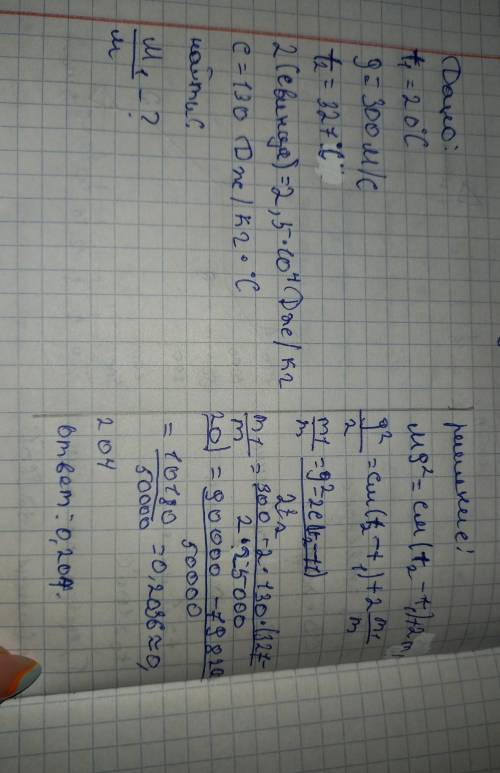 Дано:
t₁ = 20°C
g = 300 м/с
t₂ = 327°C
2 (свинца) = 2,5·10⁴ Дж/кг
c = 130 Дж/кг·°C
найти:
M₁/m - ?
решение:
Mg² = cm(t₂ - t₁) + 2m₁
g²/2 = cm(t₂ - t₁) + 2m₁/m
m1/m = g² - 2c(t₂ - t1)/2t₂
m1/m = 300 - 2·130·(327-/2·25000
20) = 90000 - 79820/50000
= 10180/50000 = 0,2036 ≈ 0,
204
Ответ = 0,204.